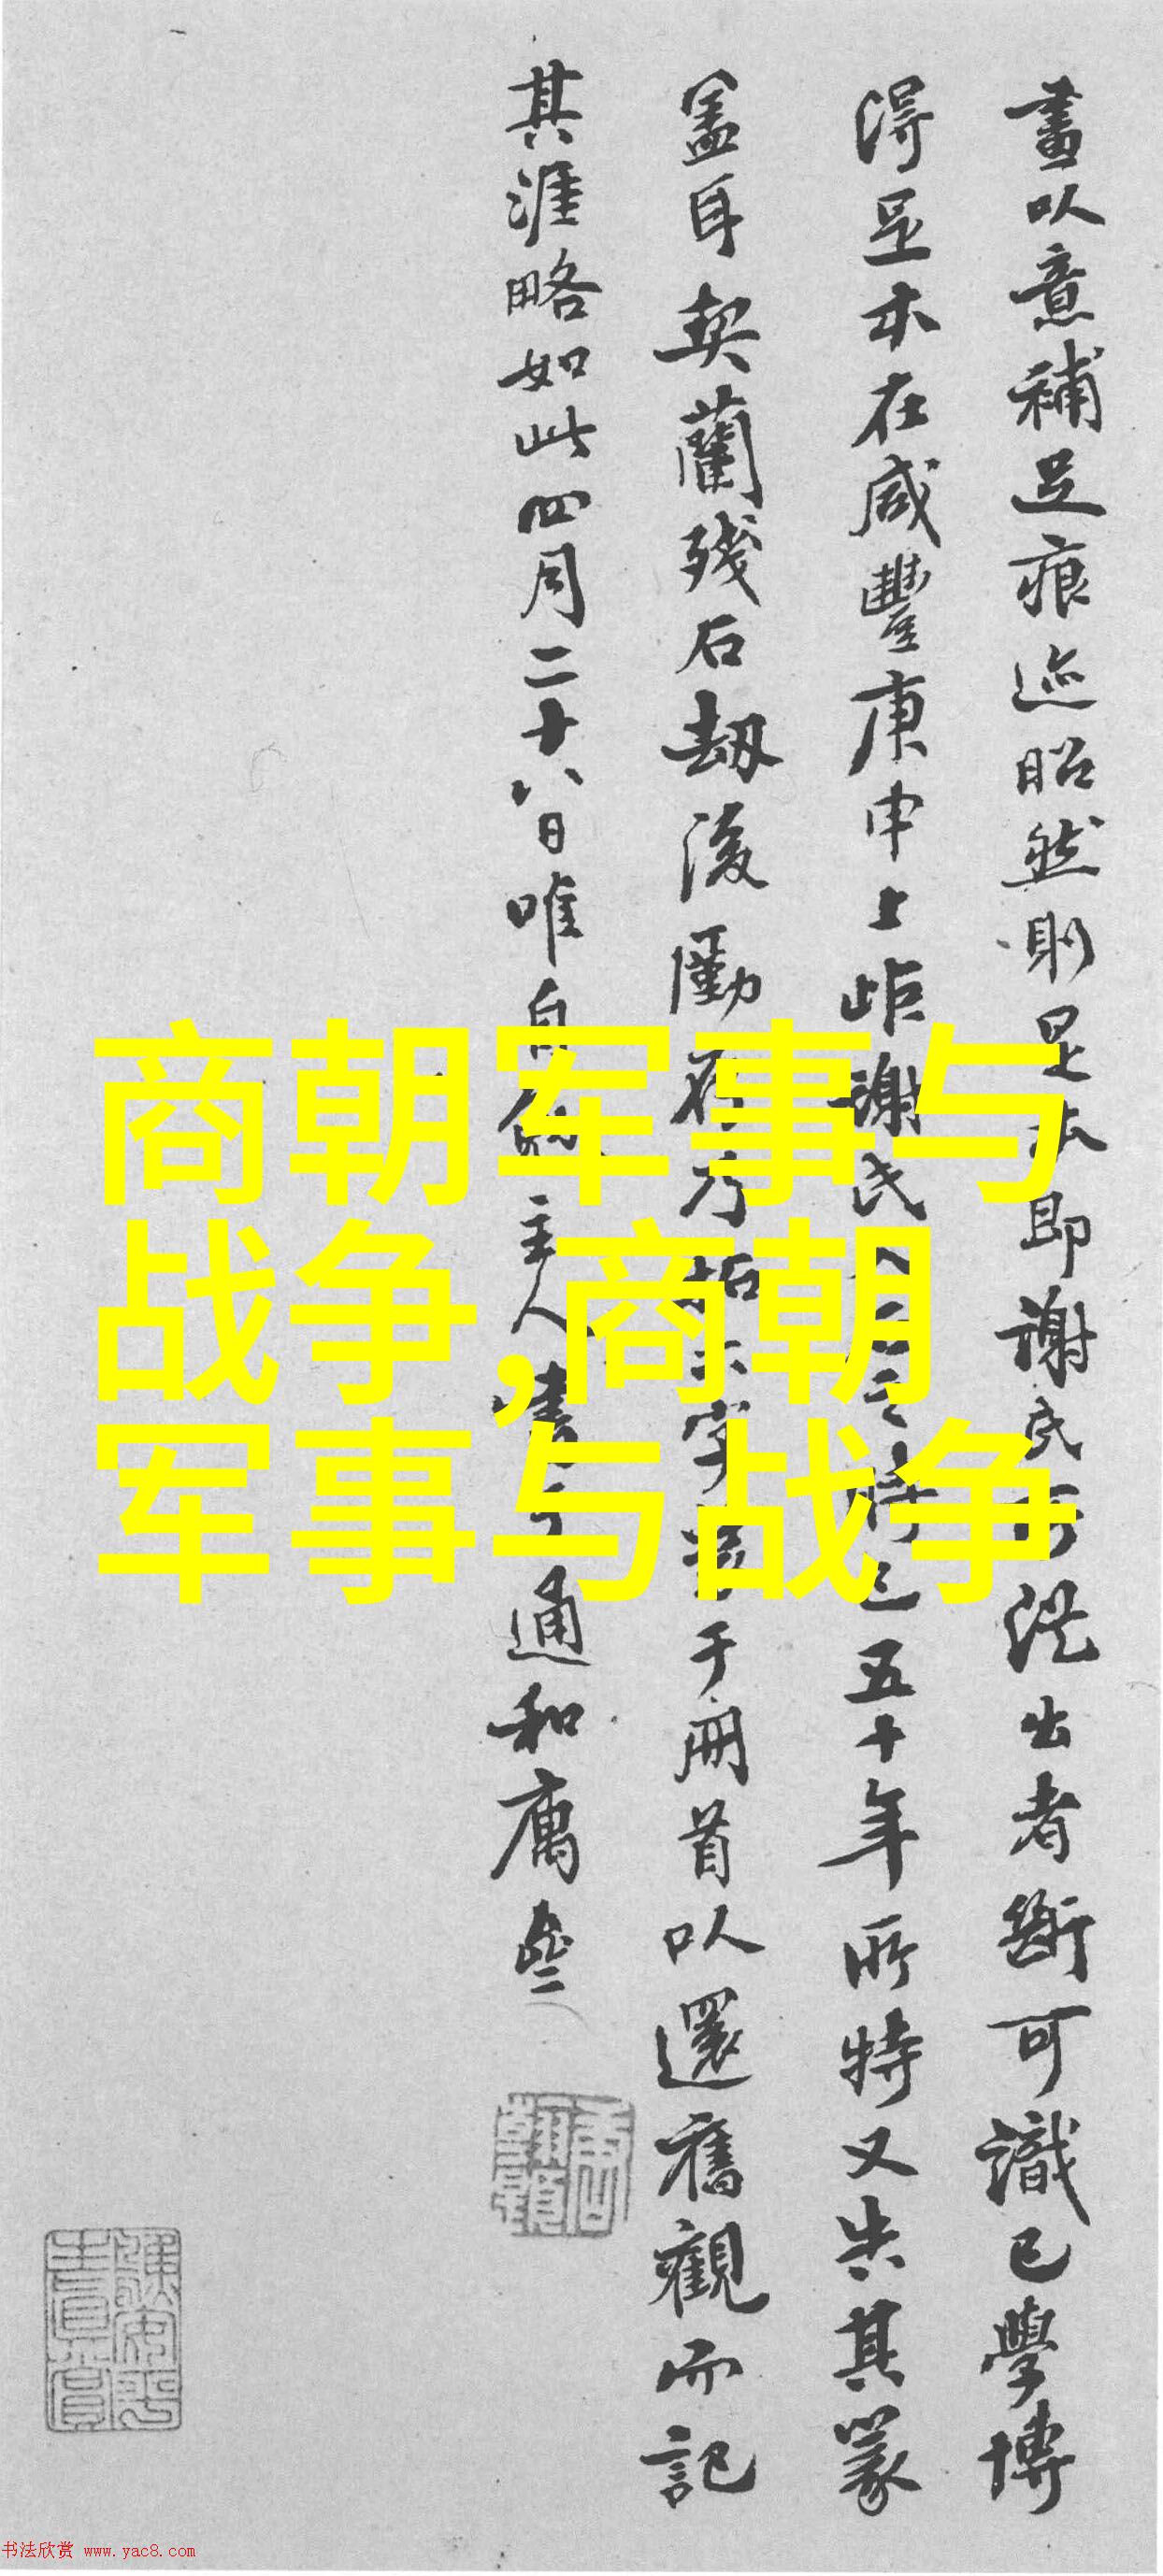 畫以意補足痕迹昭然則是本即謝氏所從出者斷可識已學博
得足本在咸豐庚申上距謝氏入石之時已五十年所特又失其篆
盖耳契蘭殘石劫後勵存乃拓六字裝于冊首以還舊觀而記
其涯略如此四月二十八日唯自勉主人書于通和廎
商朝军事与
战争,商朝
军事与战争
书法欣赏 www.yac8.com